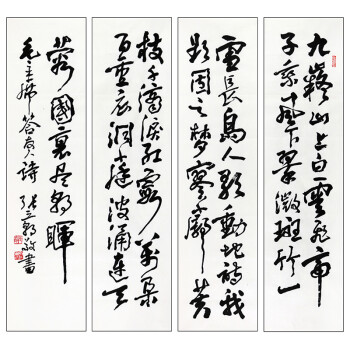 九嶷山上白雲飛帝
子乘風下翠微斑竹一
雪長島人歌動地詩我
欲因之夢寥廓芙
枝千滴淚紅霞萬朵
百重衣洞庭波涌連天
蓉國裏盡朝暉
毛主席答友人詩 書